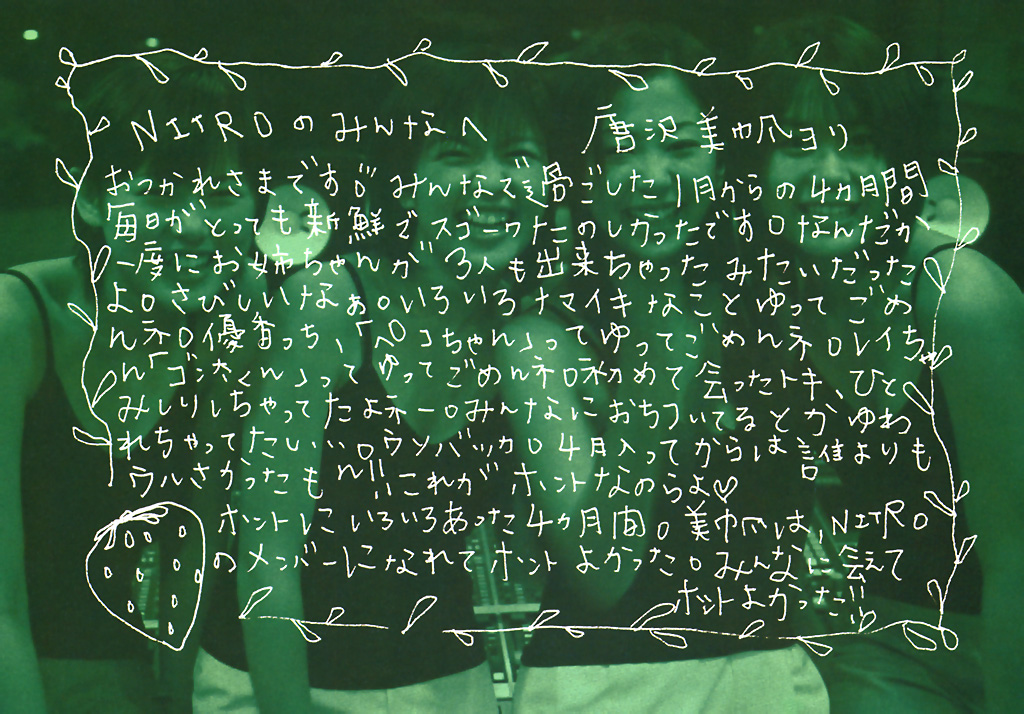 NITROのみんなへ 唐沢美帆ヨリ
おつかれさまです。みんなで過ごした1月からの4ヵ月間
毎日がとっても新鮮でスゴークたのしかったです。なんだか、
一度にお姉ちゃんが3人も出来ちゃったみたいだった
よ。さびしいなぁ。いろいろナマイキなことゆってごめ
んネ。優香っち、「ペコちゃん」ってゆってごめんネ。レイちゃ
ん「ゴンたくん」ってゆってごめんネ。初めて会ったトキ、ひと
みしりしちゃってたよネー。みんなにおちついてるとかゆわ
れちゃってたし・・・。ウソバッカ。4月入ってからは誰よりも
ウルさかったも〜!!これがホントなのらよ♡
ホントにいろいろあった4ヵ月間。美帆は、NITRO
のメンバーになれてホントよかった。みんなに会えて
ホントよかった!!